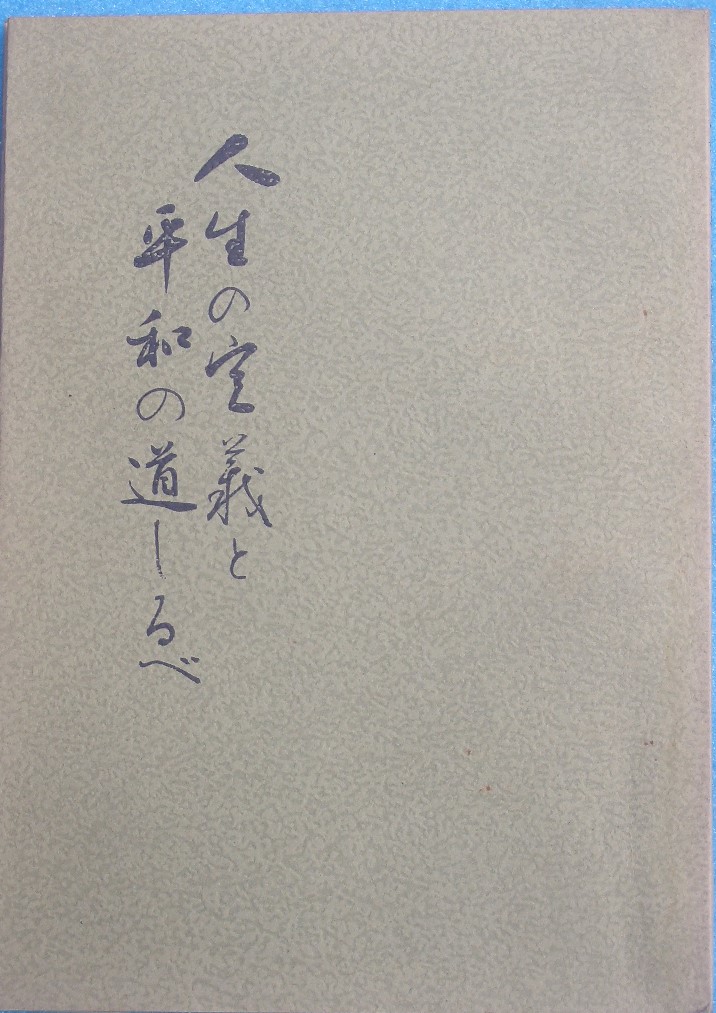 人生の定義と
平和の道しるべ